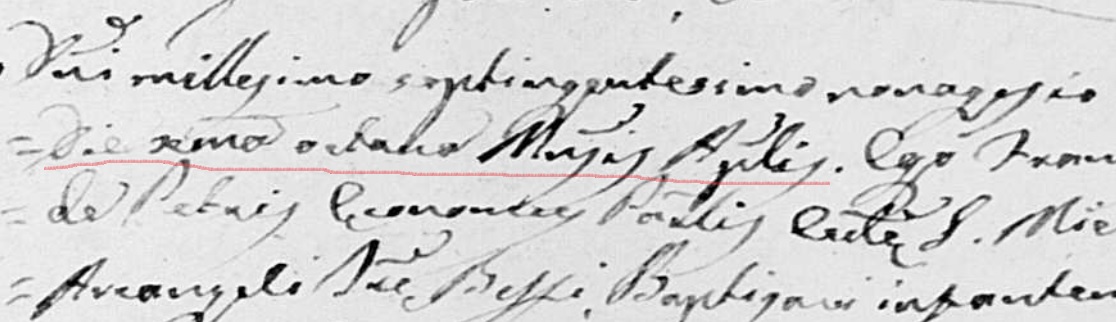 Dni millesimo septingentesimo nonagesio
= die xma octava Mensis Aplis. Ego Fran
= de Petris Economus Paalis Ecctę S. Mic
= Arcangeli Baptizavi infantem